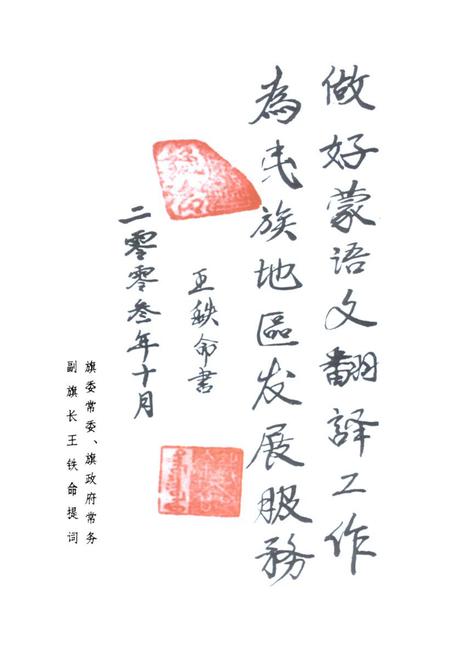 做好蒙语文翻譯工作
為民族地區发展服務
王鉄命書
二零零叁年十月
旗委常委、旗政府常务
副旗长王铁命提词